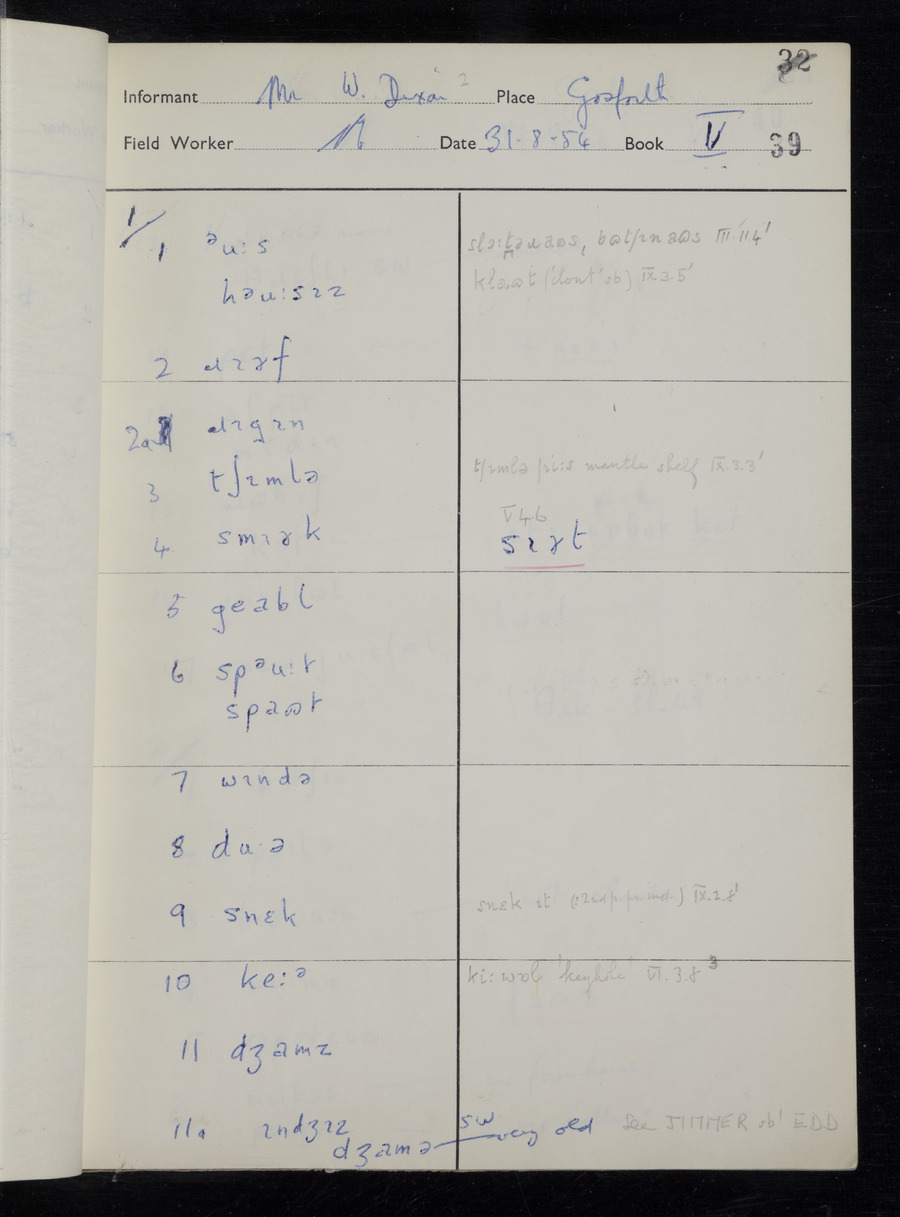 32
Informant Mr W. Dixon 2 Place Gosforth
Field Worker Date 31-8-54 Book V 39
1/
1 ᵊu:s slɔ:t̪əɹaʊs, bʊtʃɪnaʊs III.11.4'
hᵊu:sɪz klaʊt ('clout' sb) IX.3.5'
2 ɹɪɤf
2a ɹɪgɪn
3 tʃɪmlə tʃɪmlə pi:s mantle shelf IX.3.3'
V.4.6
4 smɪɤk sɪɤt
5 geabl
6 spᵊu:t
spaʊt
7 wɪndə
8 du·ə
9 snɛk snɛk ɪt IX.2.8'
10 ke:ᵊ ki:wɒl 'keyhole' VI.3.8 3
11 dʒamz
11a ɪndʒɪz
dʒamə SW very old See JIMMER sb' EDD